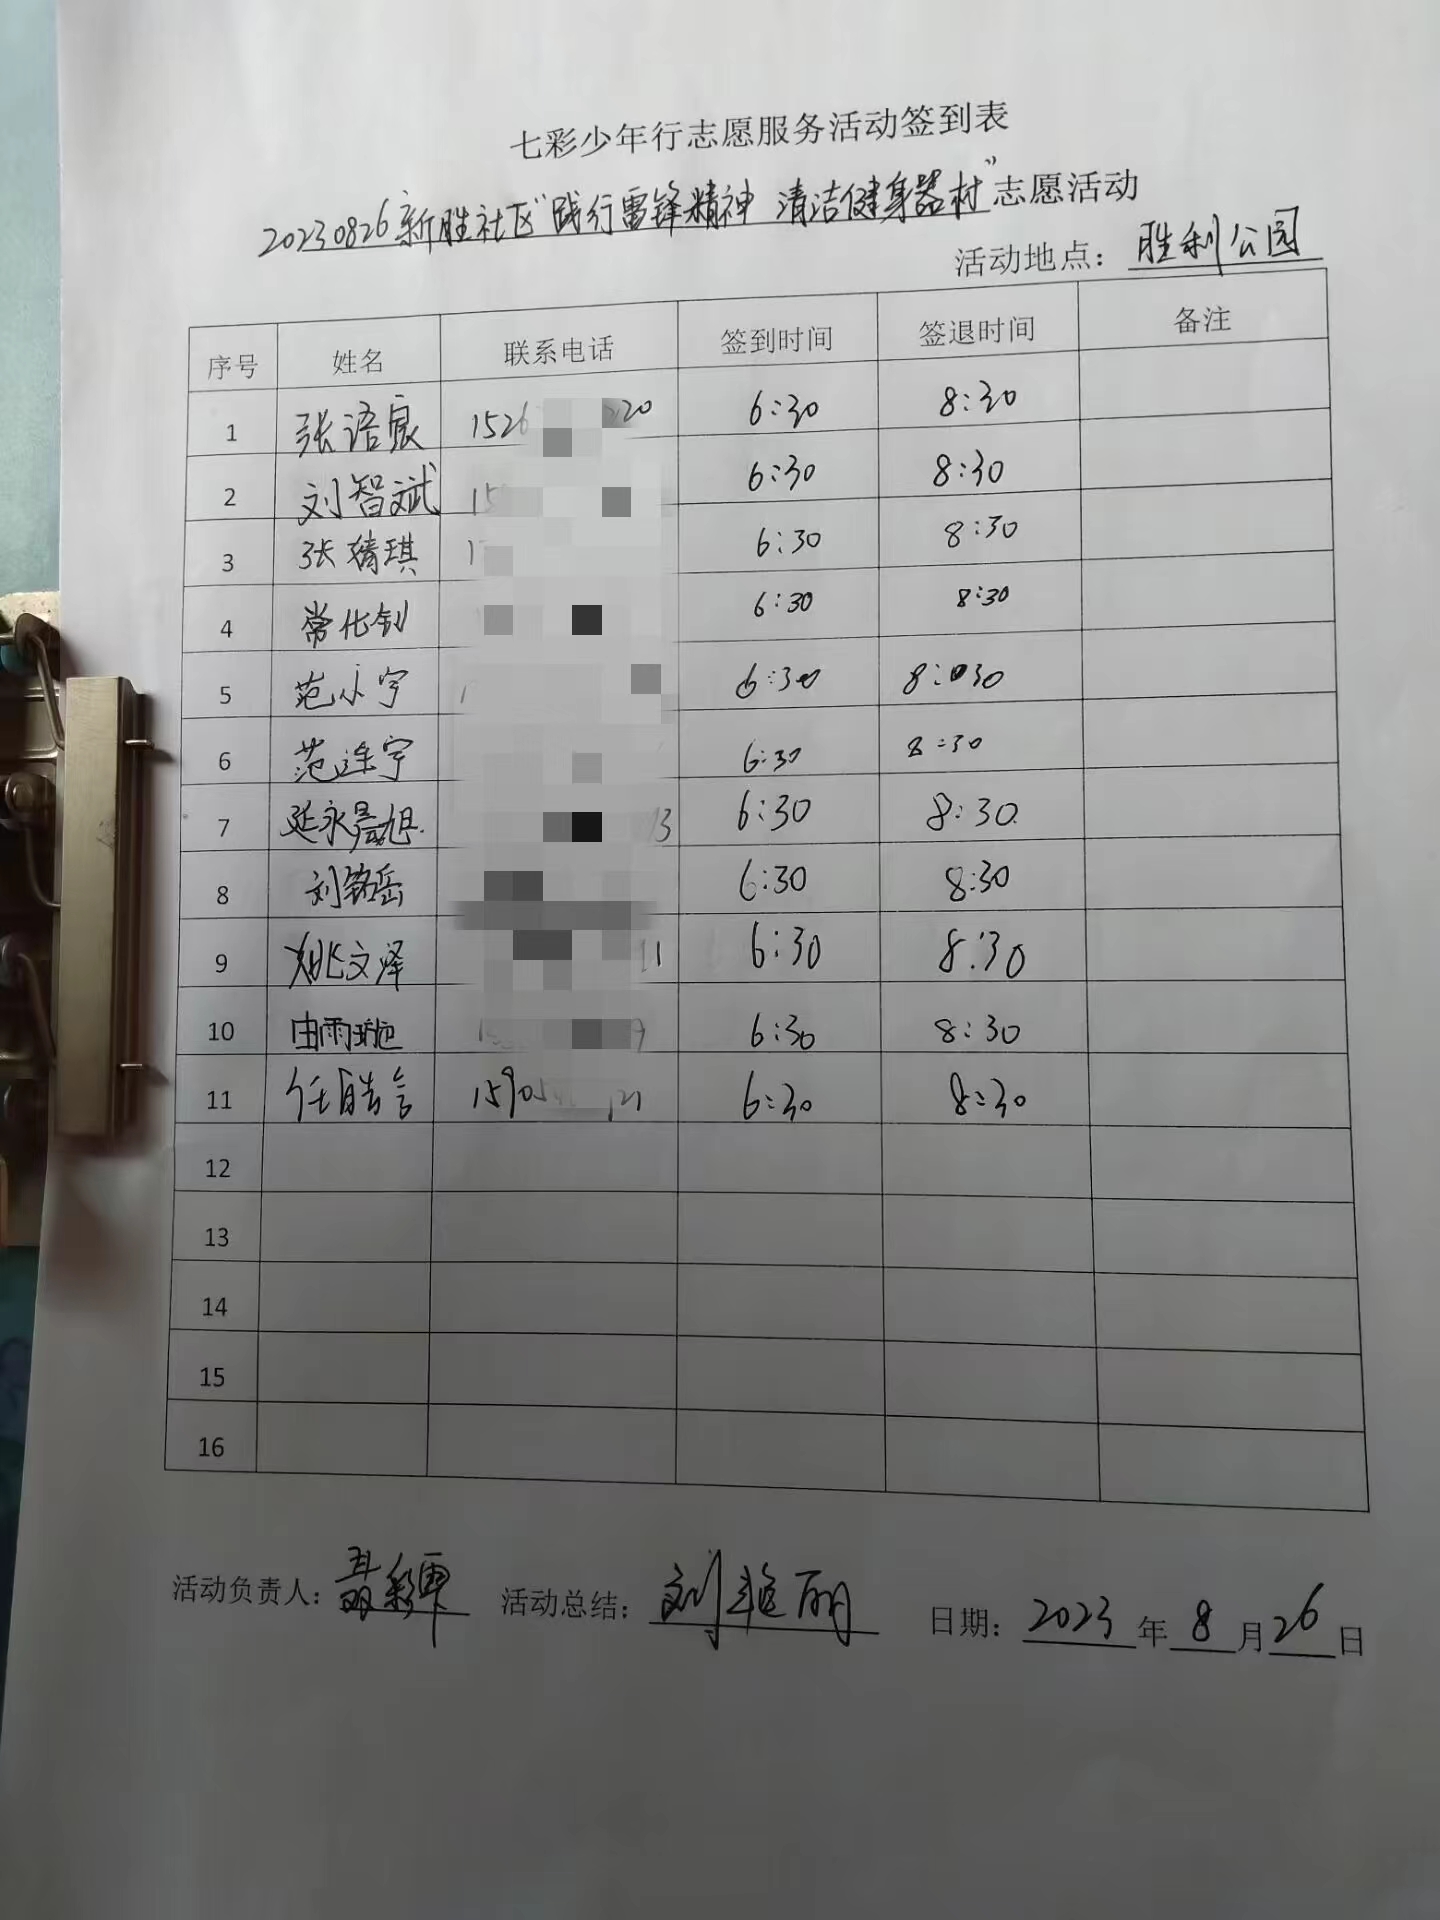 七彩少年行志愿服务活动签到表
20230826新胜社区“践行雷锋精神 清洁健身器材”志愿活动
活动地点：胜利公园
序号 姓名 联系电话 签到时间 签退时间 备注
1 张语宸 1526 220 6:30 8:30
2 刘智斌 15 6:30 8:30
3 张 琪 1 6:30 8:30
4 常化钊 6:30 8:30
5 范小宇 1 6:30 8:030
6 范途宇 6:30 8:30
7 延永晨旭 13 6:30 8:30
8 刘铭岳 6:30 8:30
9 姚文泽 11 6:30 8:30
10 由雨 15 9 6:30 8:30
11 任皓言 1590 21 6:30 8:30
12
13
14
15
16
活动负责人：聂 活动总结：刘艳丽 日期：2023年8月26日